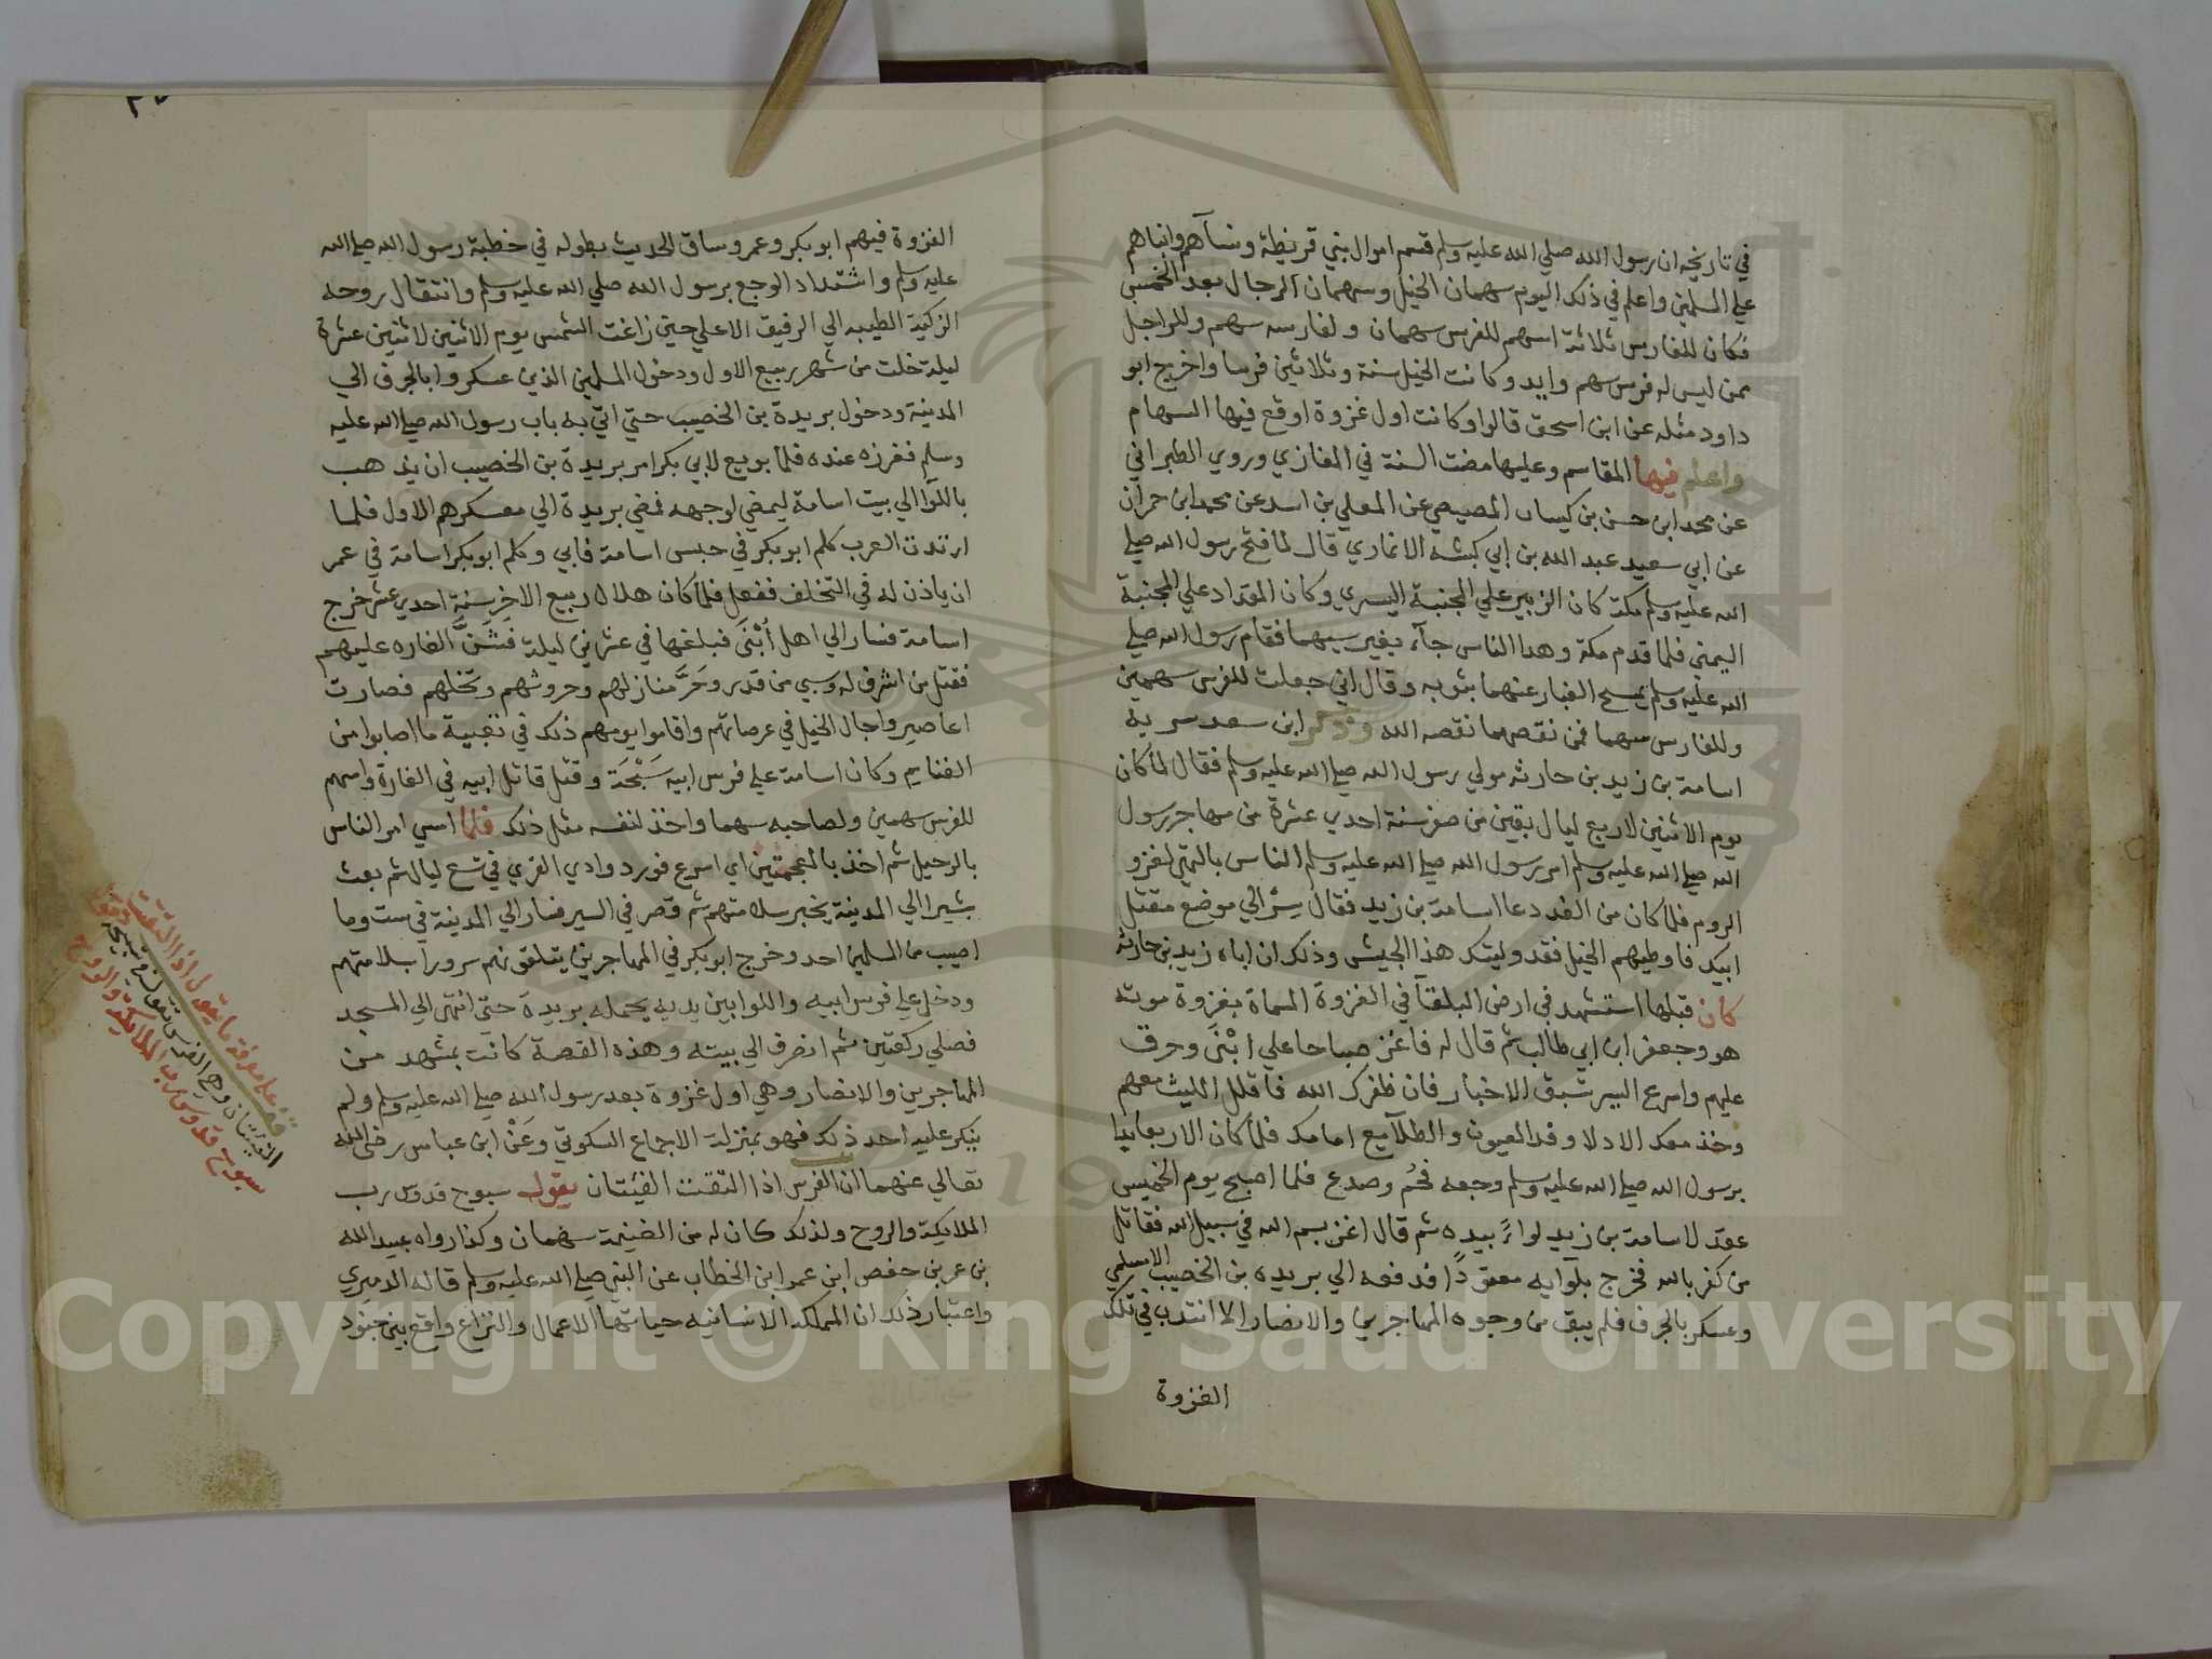 في تاريخه ان رسول الله صلي الله عليه وسلم قسم اموال بني قريظة ونسآهم وابناهم
علي المسلمين واعلم في ذلك اليوم سهمان الخيل وسهمان الرجال بعد الخمس
فكان للفارس ثلاثة اسهم للفرس سهمان ولفارسه سهم وللراجل
ممن ليس له فرس سهم وايد وكانت الخيل ستة وثلاثين فرسا واخرج ابو
داود مثله عن ابن اسحق قالوا وكانت اول غزوة اوقع فيها السهام
واعلم فيها المقاسم وعليها مضت السنة في المغازي وروي الطبراني
عن محمد ابن حسن بن كيسان المصيصي عن المعلي بن اسد عن محمد ابن حمران
عن ابي سعيد عبد الله بن ابي كبشه الانماري قال لما فتح رسول الله صلي
الله عليه وسلم مكة كان الزبير علي المجنبة اليسري وكان المقداد علي المجنبة
اليمني فلما قدم مكة وهدا الناس جآء بفرسيهما فقام رسول الله صلي
الله عليه وسلم يمسح الغبار عنهما بثوبه وقال اني جعلت للفرس سهمين
وللفارس سهما فمن نقصهما نقصه الله وذكر ابن سعد سرية
اسامة بن زيد بن حارثه مولي رسول الله صلي الله عليه وسلم فقال لما كان
يوم الاثنين لاربع ليال بقين من صفر سنة احدي عشرة من مهاجر رسول
الله صلي الله عليه وسلم امر رسول الله صلي الله عليه وسلم الناس بالتهيّ لغزو
الروم فلما كان من الغد دعا اسامة بن زيد فقال سِرْ الي موضع مقتل
ابيك فاوطيهم الخيل فقد وليتك هذا الجيش وذلك ان اباه زيد بن حارثه
كان قبلها استشهد في ارض البلقآ في الغزوة المسماة بغزوة موته
هو وجعفر ابن ابي طالب ثم قال له فاغز صباحا علي ابْنَي وحرق
عليهم واسرع السير تسبق الاخبار فان ظفرك الله فاقلل اللبث معهم
وخذ معك الادلا وقد العيون والطلآيع امامك فلما كان الاربعا بدا
برسول الله صلي الله عليه وسلم وجعه فحُم وصدع فلما اصبح يوم الخميس
عقد لاسامة بن زيد لواءً بيده ثم قال اغز بسم الله في سبيل الله فقاتل
من كفر بالله فخرج بلوايه معقودًا فدفعه الي بريده بن الخصيب الاسلمي
وعسكر بالجرف فلم يبق من وجوه المهاجرين والانصار الا انتدب في تلك
الغزوة
الغزوة فيهم ابو بكر وعمر وساق الحديث بطوله في خطبة رسول الله صلي الله
عليه وسلم واشتداد الوجع برسول الله صلي الله عليه وسلم وانتقال روحه
الزكية الطيبه الي الرفيق الاعلي حين زاغت الشمس يوم الاثنين لاثنين عشرة
ليلة خلت من شهر ربيع الاول ودخول المسلمين الذين عسكروا بالجرف الي
المدينة ودخول بريدة بن الخصيب حتي اتي به باب رسول الله صلي الله عليه
وسلم فغرزه عنده فلما بويع لابي بكر امر بريدة بن الخصيب ان يذهب
باللوآ الي بيت اسامة ليمضي لوجهه فمضي بريدة الي معسكرهم الاول فلما
ارتدت العرب كلم ابو بكر في حبس اسامة فابي وكلم ابو بكر اسامة في عمر
ان ياذن له في التخلف ففعل فلما كان هلال ربيع الاخر سنة احدي عشر خرج
اسامة فسار الي اهل اُبْنَي فبلغها في عشرين ليلة فشَنَّ الغاره عليهم
فقتل من اشرف له وسبي من قدر وحَرَّ منازلهم وحروثهم ونخلهم فصارت
اعاصير واجال الخيل في عرصاتهم واقاموا يومهم ذلك في تعبية ما اصابوا من
الغنايم وكان اسامة علي فرس ابيه سَبْحَة وقتل قاتل ابيه في الغارة واسهم
للفرس سهمين ولصاحبه سهما واخذ لنفسه مثل ذلك فلما امسي امر الناس
بالرحيل ثم اخذ بالمعجمتين اي اسرع فورد وادي القري في تسع ليال ثم بعث
بشيرا الي المدينة يخبر سلامتهم ثم قصر في السير فسار الي المدينة في ست وما
اصيب من المسلمين احد وخرج ابو بكر في المهاجرين يتلقونهم سرورا بسلامتهم
ودخل علي فرس ابيه واللوا بين يديه يحمله بريدة حتي انتهي الي المسجد
فصلي ركعتين ثم انصرف الي بيته وهذه القصة كانت بمشهد من
المهاجرين والانصار وهي اول غزوة بعد رسول الله صلي الله عليه وسلم ولم
ينكر عليه احد ذلك فهو بمنزلة الاجماع السكوتي وعَنْ ابن عباس رضي الله
تعالي عنهما ان الفرس اذا التقت الفئتان يقول سبوح قدوس رب
الملايكة والروح ولذلك كان له من الغنيمة سهمان وكذا رواه عبيد الله
بن عمر بن حفص ابن عمر ابن الخطاب عن النبي صلي الله عليه وسلم قاله الدميري
واعتبار ذلك ان المملكة الانسانيه حياتها الاعمال والنزاع واقع بين جنود
قف علي معرفة ما يقول اذا التقت
الفئتان وهي الفرس تقول
سبوح قدوس رب الملايكة والروح
Copyright © King Saud University